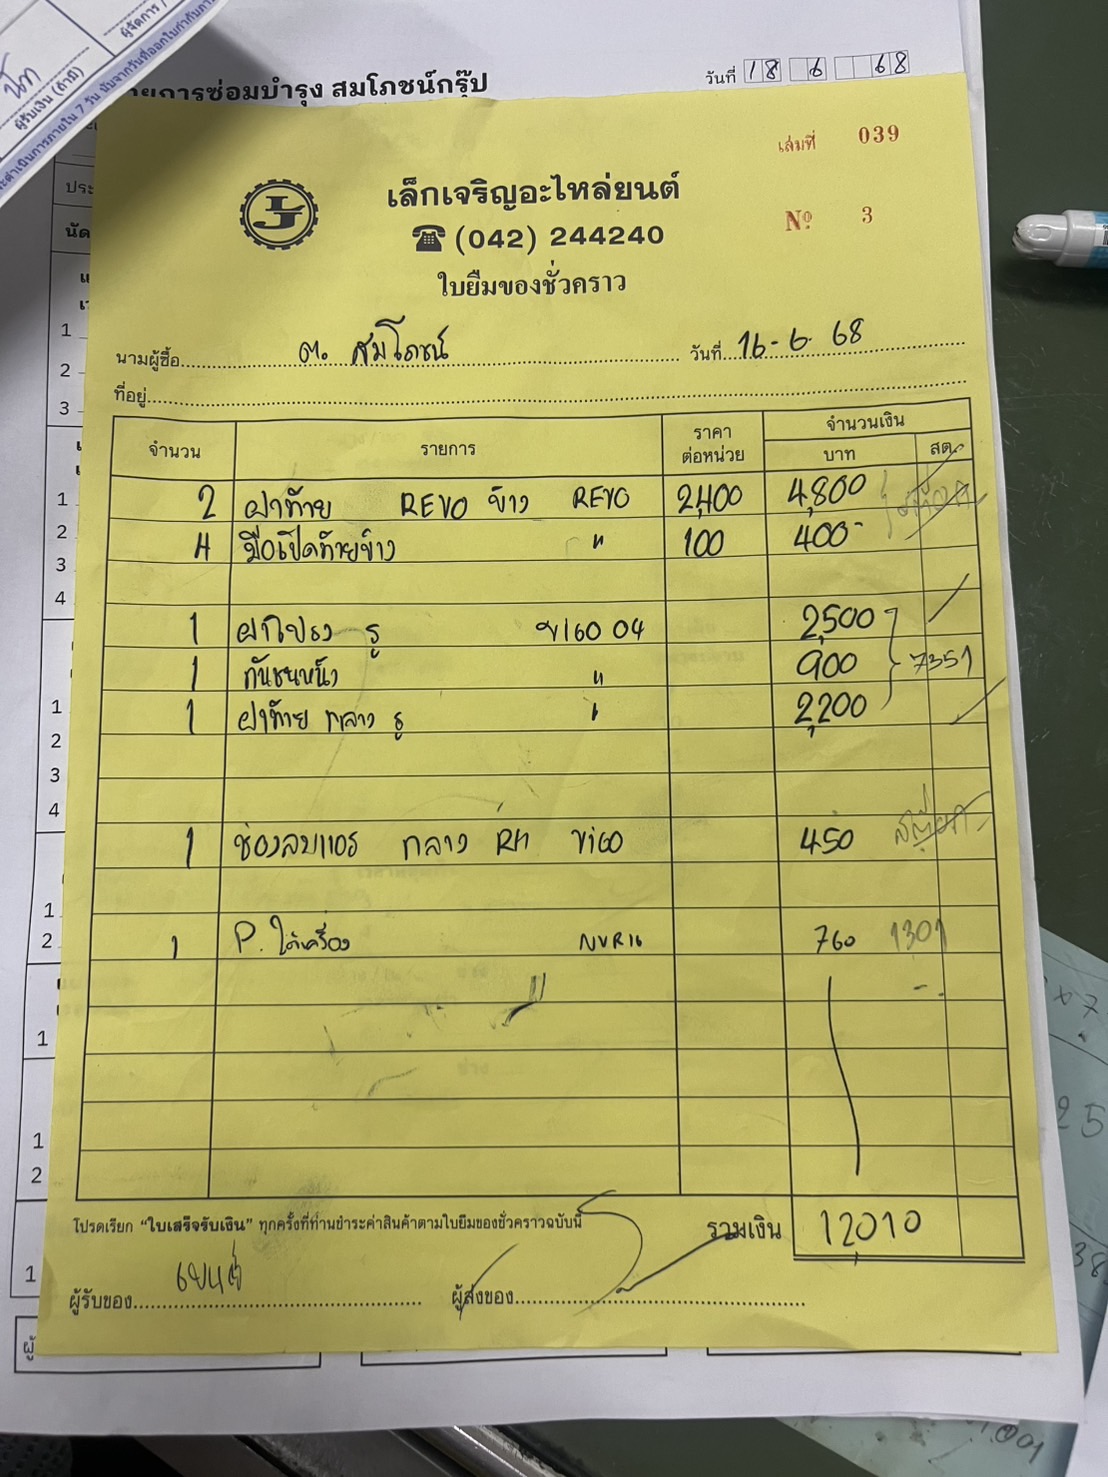 นัท
ผู้รับเงิน (ล้านี้)
ผู้จัดการ /
ดำเนินการภายใน 7 วัน นับจากวันที่ออกใบกำกับภา
รายการซ่อมบำรุง สมโภชน์กรุ๊ป
วันที่ 18 6 68
เล่มที่ 039
LJ
เล็กเจริญอะไหล่ยนต์
Nº 3
☎ (042) 244240
ใบยืมของชั่วคราว
นามผู้ซื้อ ต. สมโภชน์ วันที่ 16-6-68
ที่อยู่
จำนวน รายการ ราคาต่อหน่วย จำนวนเงิน
บาท สต.
2 ฝาท้าย REVO ข้าง REVO 2,400 4,800
4 มือเปิดท้ายข้าง " 100 400-
1 ฝาโปรง รู VIGO 04 2,500
1 กันชนหน้า " 900 7351
1 ฝาท้าย กลาง รู " 2,200
1 ช่องลมแอร์ กลาง RH VIGO 450
1 P. ใต้เครื่อง NVR16 760 1301
โปรดเรียก "ใบเสร็จรับเงิน" ทุกครั้งที่ท่านชำระค่าสินค้าตามใบยืมของชั่วคราวฉบับนี้
รวมเงิน 12,010
ผู้รับของ
ผู้ส่งของ